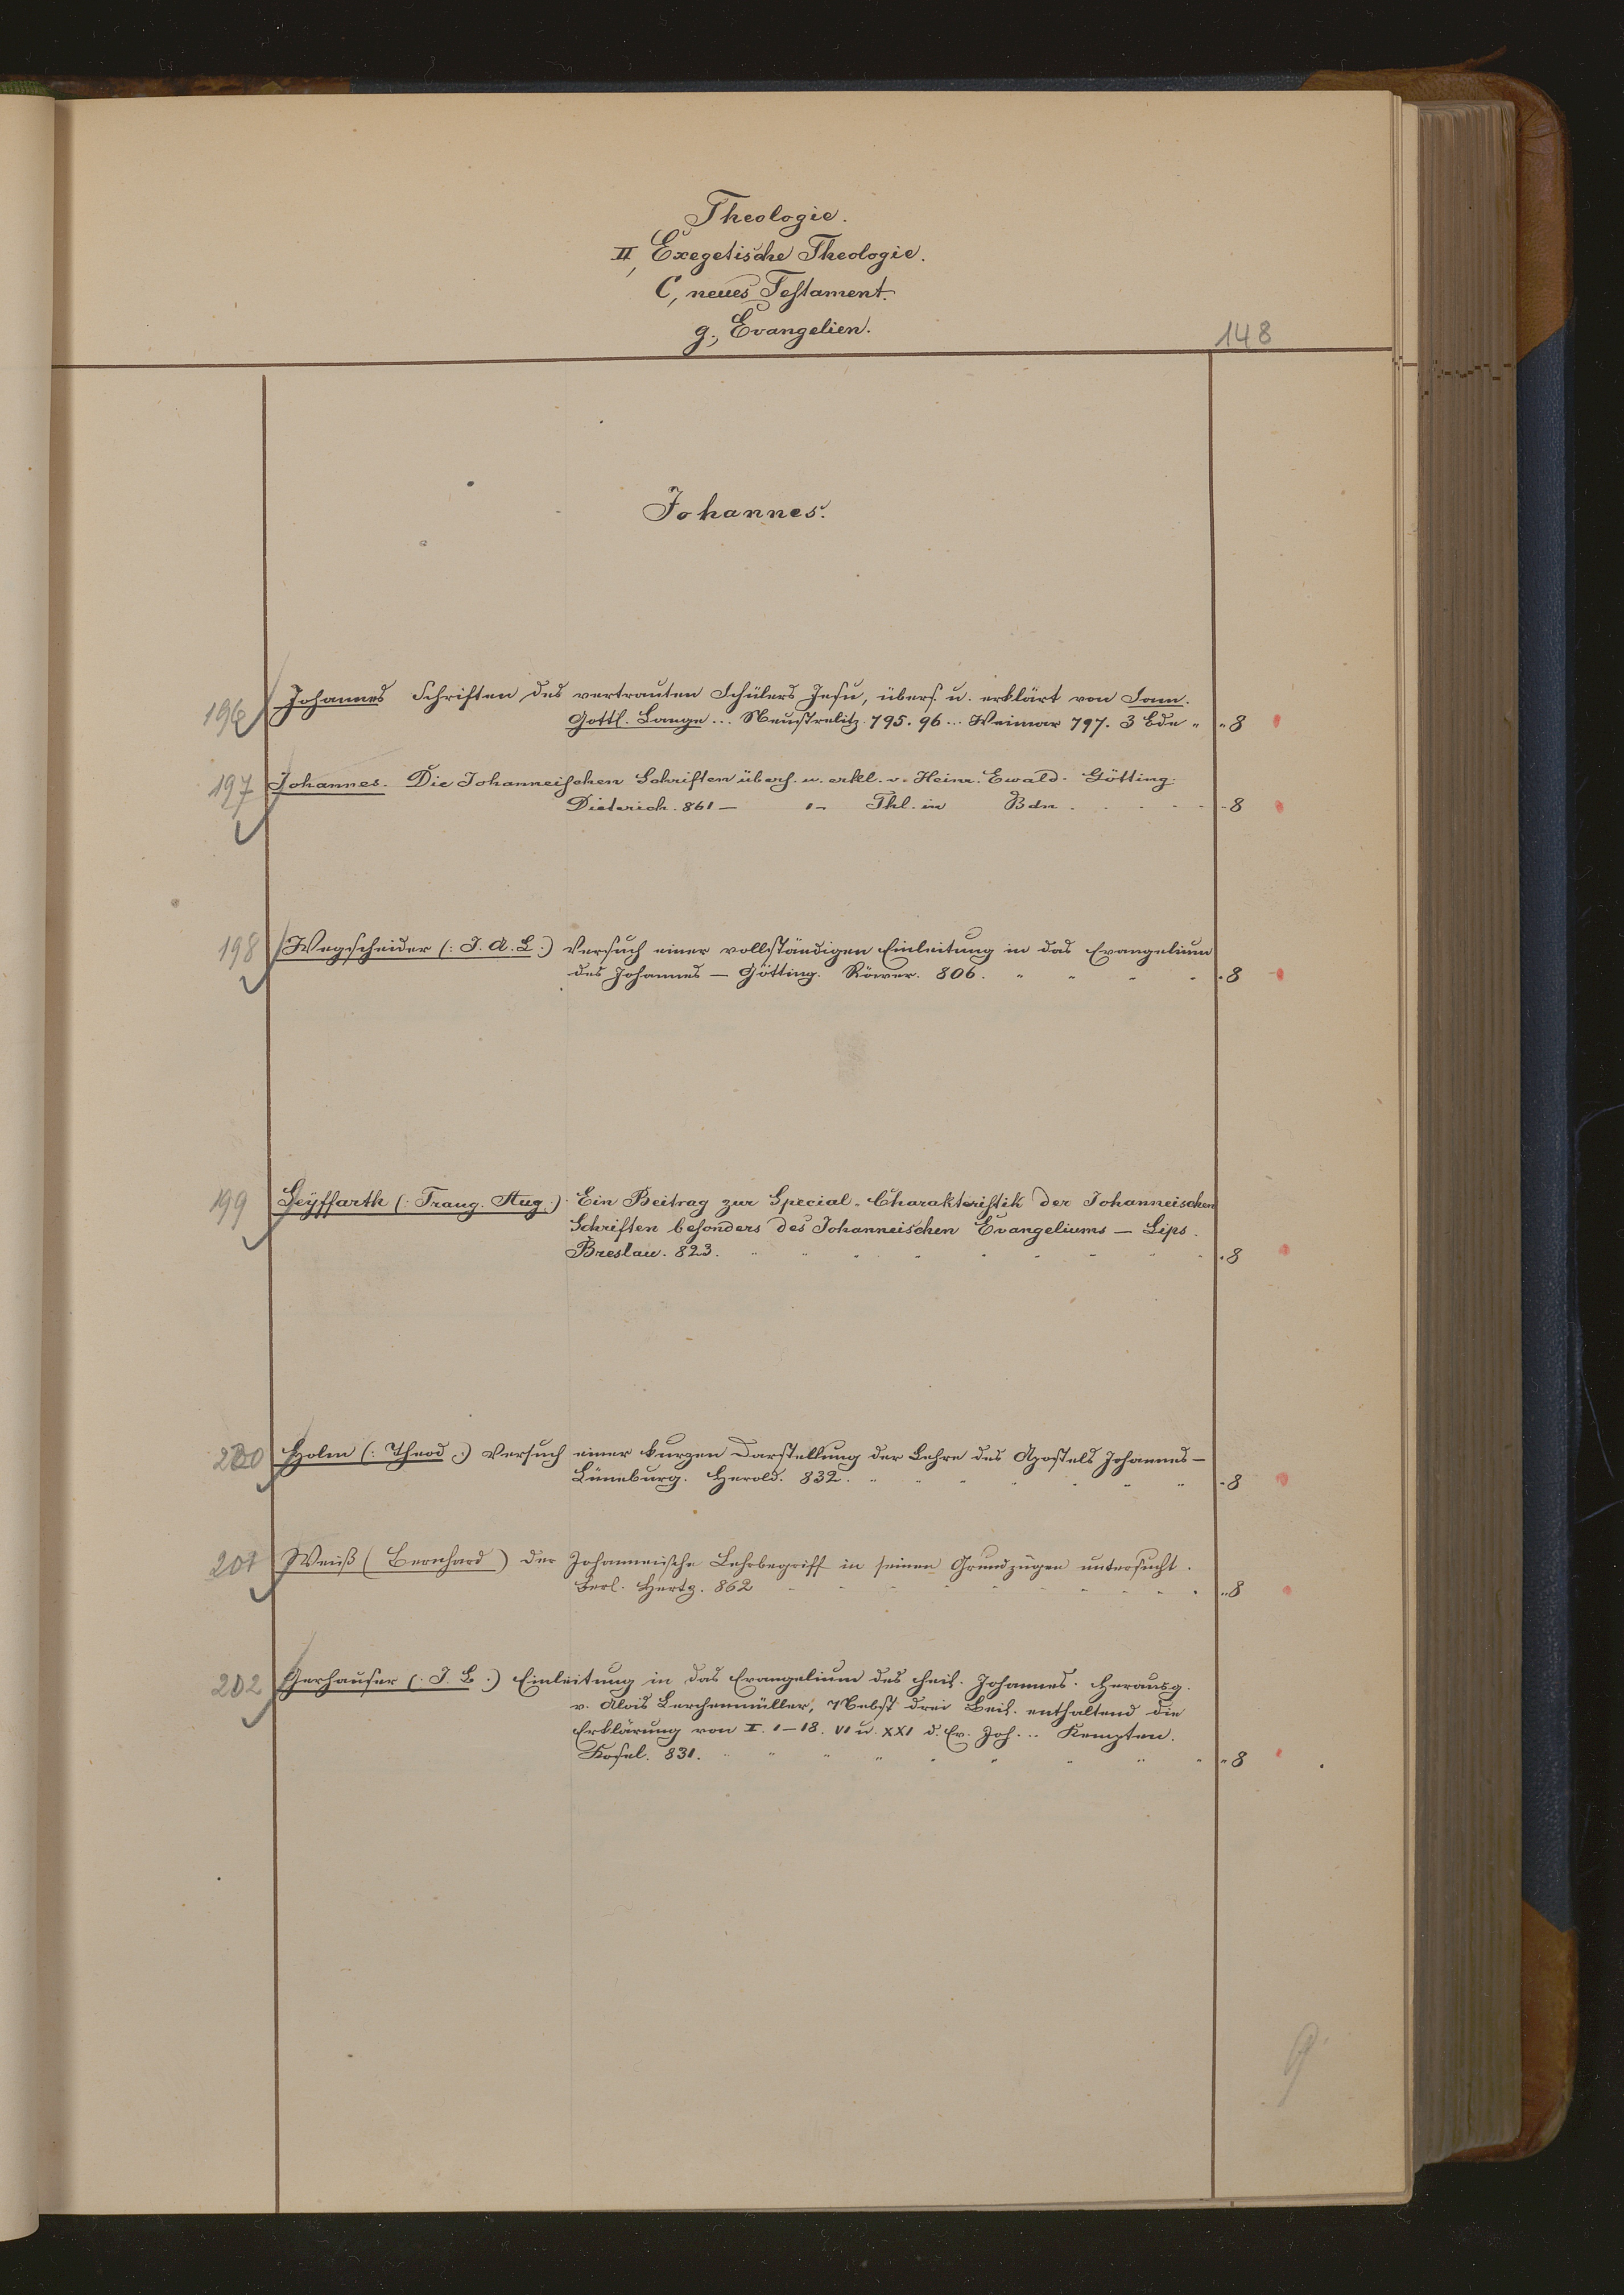 Theologie.
II, Exegetische Theologie.
C, neues Testament.
g., Evangelien.
148
Johannes.
196 Johannes Schriften des vertrauten Schülers Jesu, übers. u. erklärt von Sam.
Gottl. Lange ... Neustrelitz. 795. 96 ... Weimar 797. 3 Bde " " 8
197 Johannes. Die Johanneischen Schriften übers. u. erkl. v. Heinr. Ewald. Götting.
Dieterich. 861 — 1- Thl. in Bdn . . . . - 8
198 Wegscheider (: J. A. L :) Versuch einer vollständigen Einleitung in das Evangelium
des Johannes — Götting. Röwer. 806. " " " " . 8
199 Seyffarth (: Traug. Aug :) Ein Beitrag zur Special-Charakteristik der Johanneischen
Schriften besonders des Johanneischen Evangeliums — Lips.
Breslau. 823. " " " " " " " " . 8
200 Holm (: Theod :) Versuch einer kurzen Darstellung der Lehre des Apostels Johannes —
Lüneburg. Herold. 832. " " " " " " " - 8
201 Weiß (Bernhard) der Johanneische Lehrbegriff in seinen Grundzügen untersucht.
Berl. Hertz. 862 " " " " " " " " 8
202 Gerhauser (: J. B :) Einleitung in das Evangelium des heil. Johannes. Herausg.
v. Alois Lerchenmüller, Nebst drei Beil. enthaltend die
Erklärung von I. 1–18. VI u. XXI d. Ev. Joh. .. Kempten.
Kosel. 831. " " " " " " " " " 8